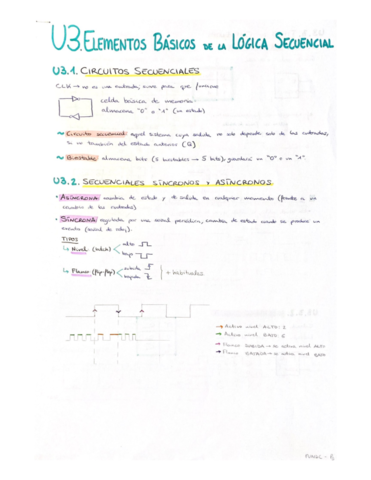 U3. ELEMENTOS BÁSICOS DE LA LÓGICA SECUENCIAL
U3.1. CIRCUITOS SECUENCIALES
CLK → no es una entrada, sirve para que
celda básica de memoria:
almacena "0" o "1" (un estado)
~ Circuito secuencial: aquel sistema cuya salida no solo depende solo de las entradas,
si no también del estado anterior (Q)
~ Biestable: almacena bits (5 biestables → 5 bits), guardará un "0" o un "1".
U3.2. SECUENCIALES SÍNCRONOS Y ASÍNCRONOS
• ASÍNCRONA: cambia de estado y salida en cualquier momento (frente a un
cambio de las entradas).
• SÍNCRONA: regulados por una señal periódica, cambia de estado cuando se produce un
evento (señal de reloj).
TIPOS
↳ Nivel (latch) alto
bajo
↳ Flanco (flip-flop) subida
bajada
+ habituales
→ Activa nivel ALTO: 1
→ Activa nivel BAJO: 0
→ Flanco SUBIDA → se activa nivel ALTO
→ Flanco BAJADA → se activa nivel BAJO